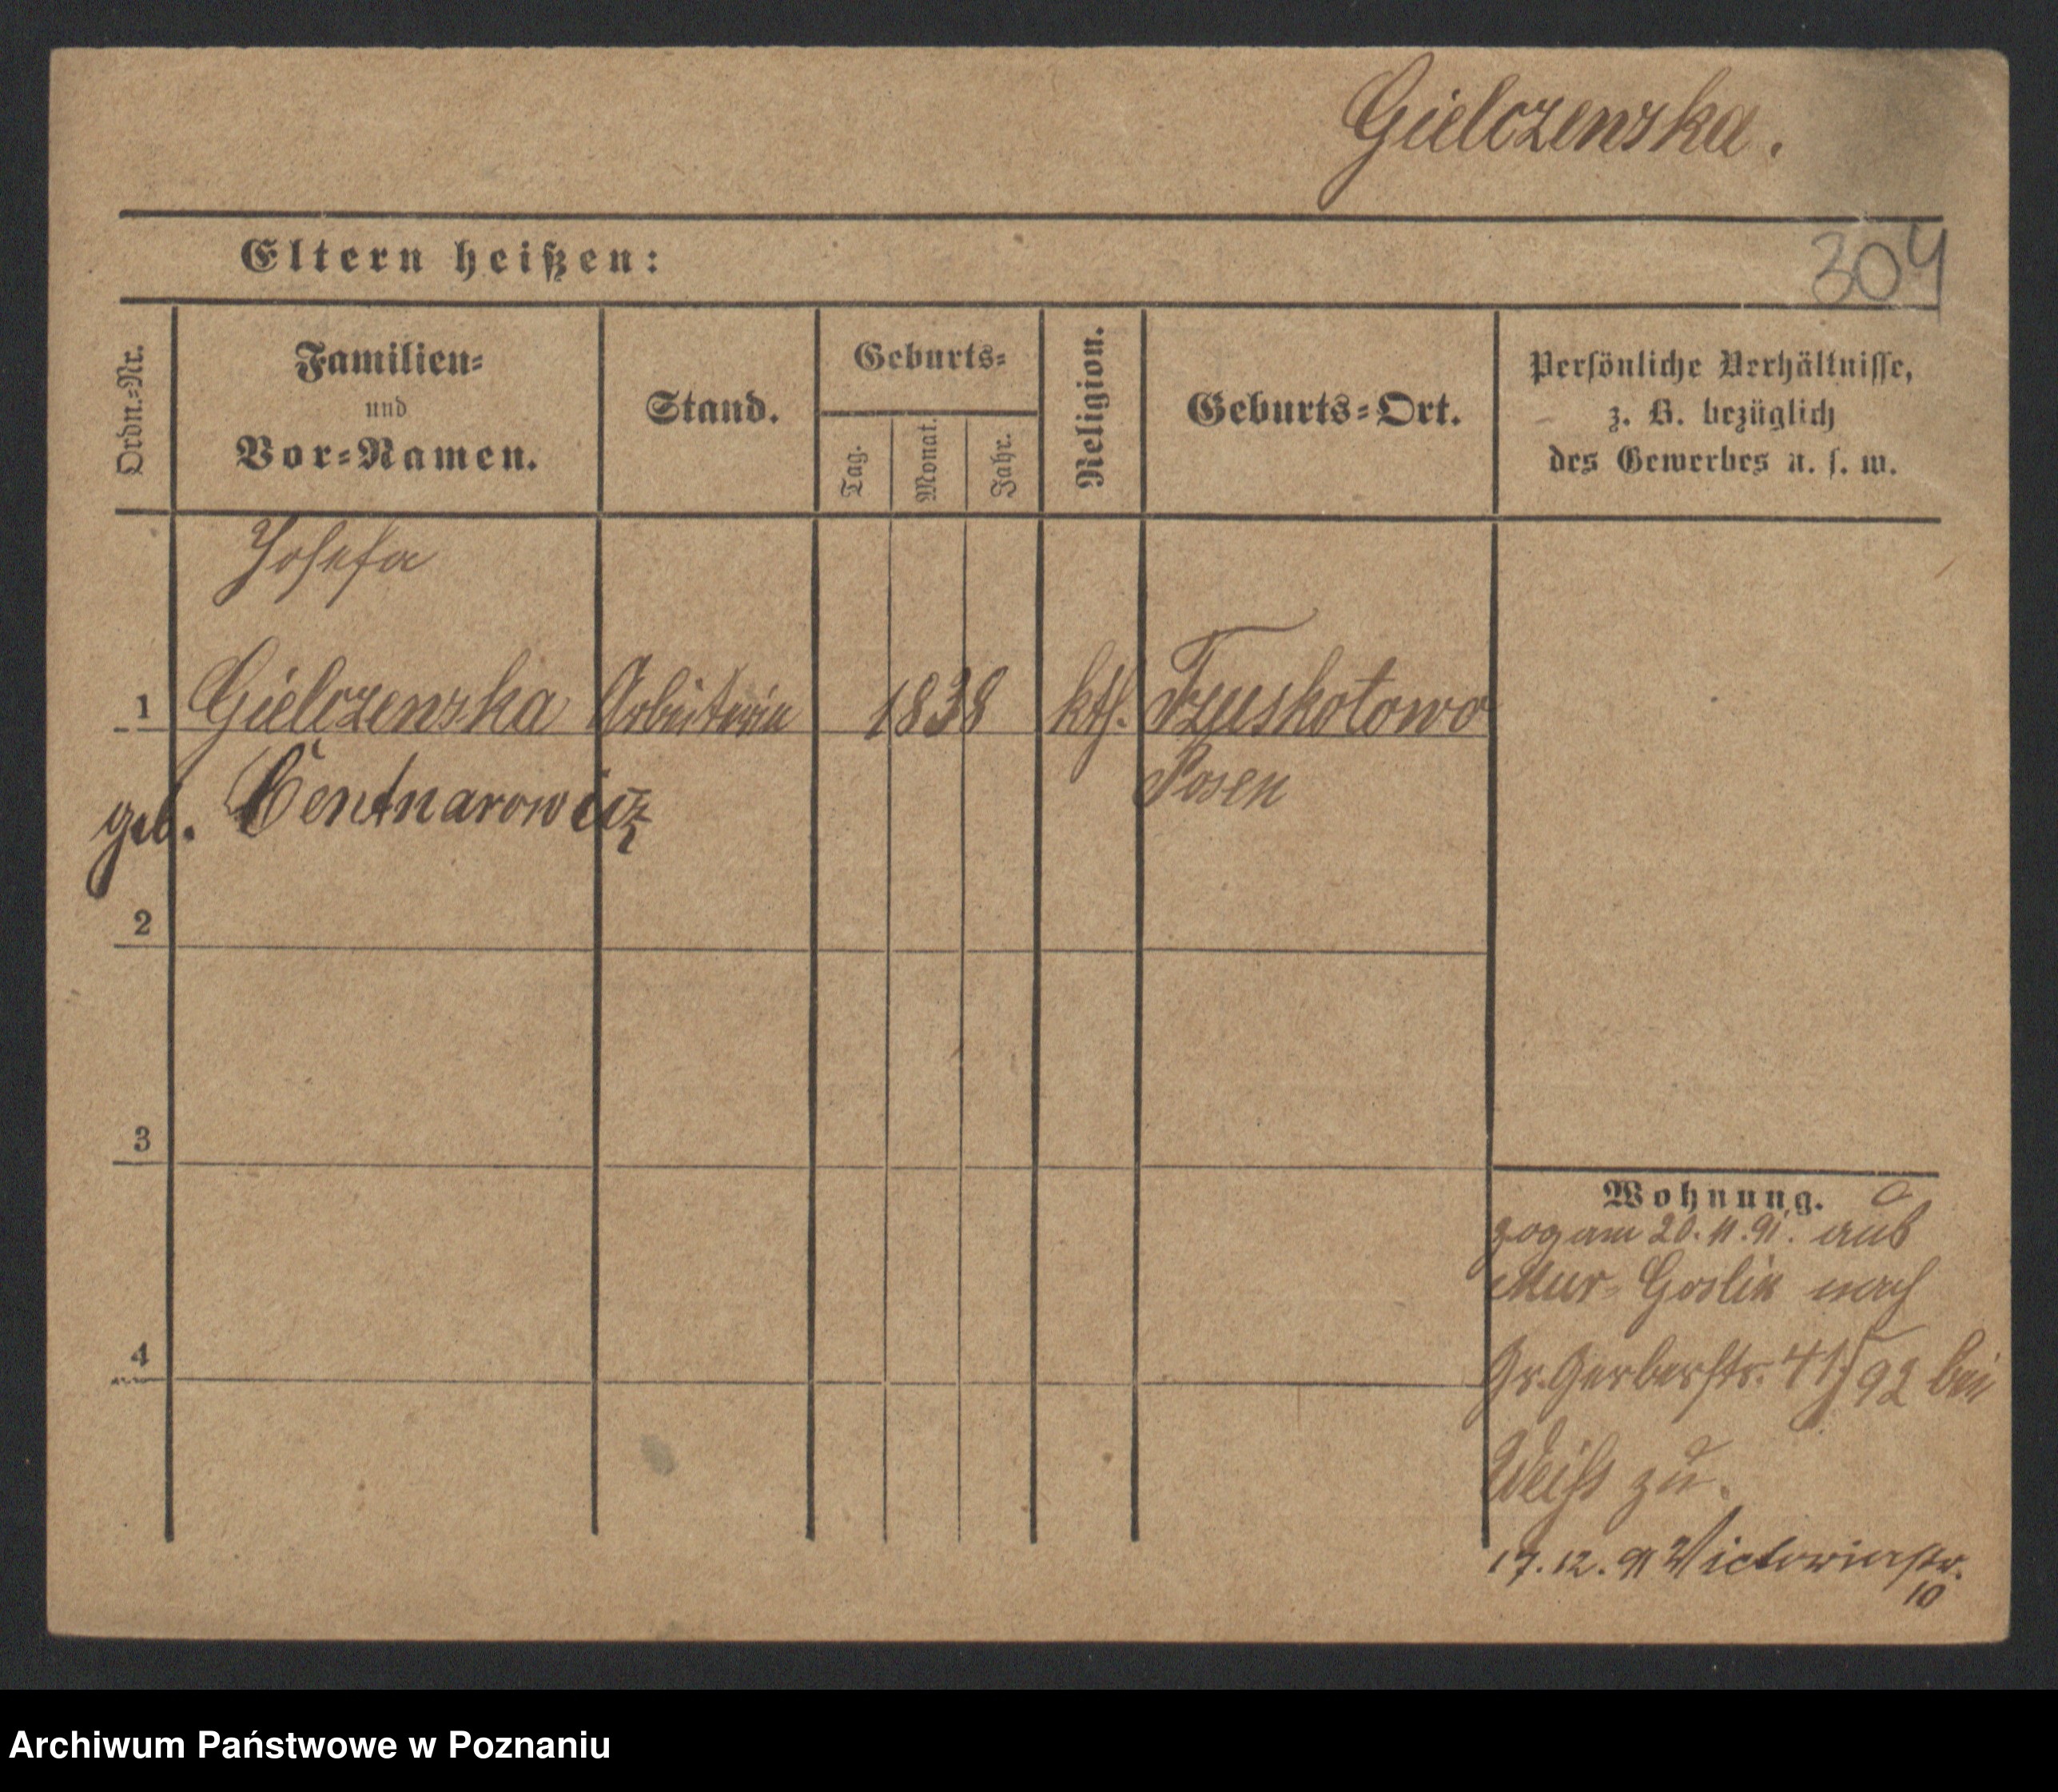 Gielczenska.
304
Eltern heißen:
Ordn.-Nr.
Familien-
und
Vor-Namen.
Stand.
Geburts-
Tag.
Monat.
Jahr.
Religion.
Geburts-Ort.
Persönliche Verhältnisse,
z. B. bezüglich
des Gewerbes u. s. w.
Josefa
1 Gielczenska Arbeiterin 1838 kth. Trzuskotowo
geb. Centnarowicz Posen
2
3
4
Wohnung.
zog am 20.11.91. aus
Mur-Goslin nach
Gr. Gerberstr. 41/92 bei
Weiss zu.
17.12.91 Victoriastr.
10
Archiwum Państwowe w Poznaniu